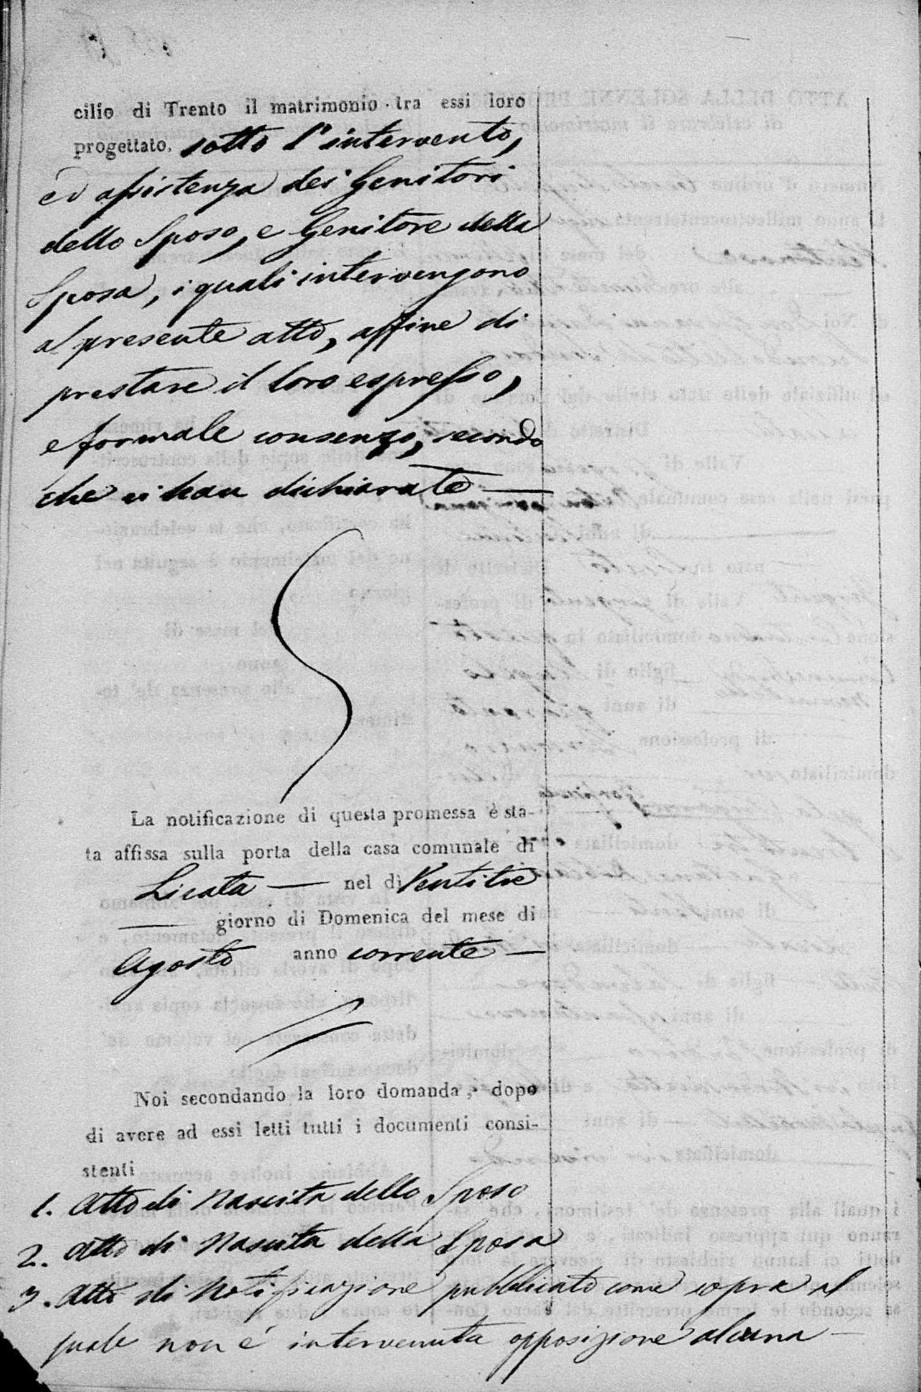 cilio di Trento il matrimonio tra essi loro
progettato, sotto l'intervento,
ed assistenza dei Genitori
dello Sposo, e Genitore della
Sposa, i quali intervengono
al presente atto, affine di
prestare il loro espresso,
e formale consenzo, secondo
che ci han dichiarato —
La notificazione di questa promessa è sta-
ta affissa sulla porta della casa comunale di
Licata — nel dì Ventitre
— giorno di Domenica del mese di
Agosto anno corrente —
Noi secondando la loro domanda, dopo
di avere ad essi letti tutti i documenti consi-
stenti
1. Atto di Nascita dello Sposo
2. Atto di Nascita della Sposa
3. Atto di Notificazione pubblicato come sopra al
quale non é intervenuta opposizione alcuna —